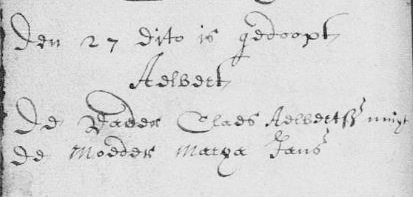 Den 27 dito is gedoopt
Aelbert
De Vader Claes Aelbertss
de Moeder Marya Jans